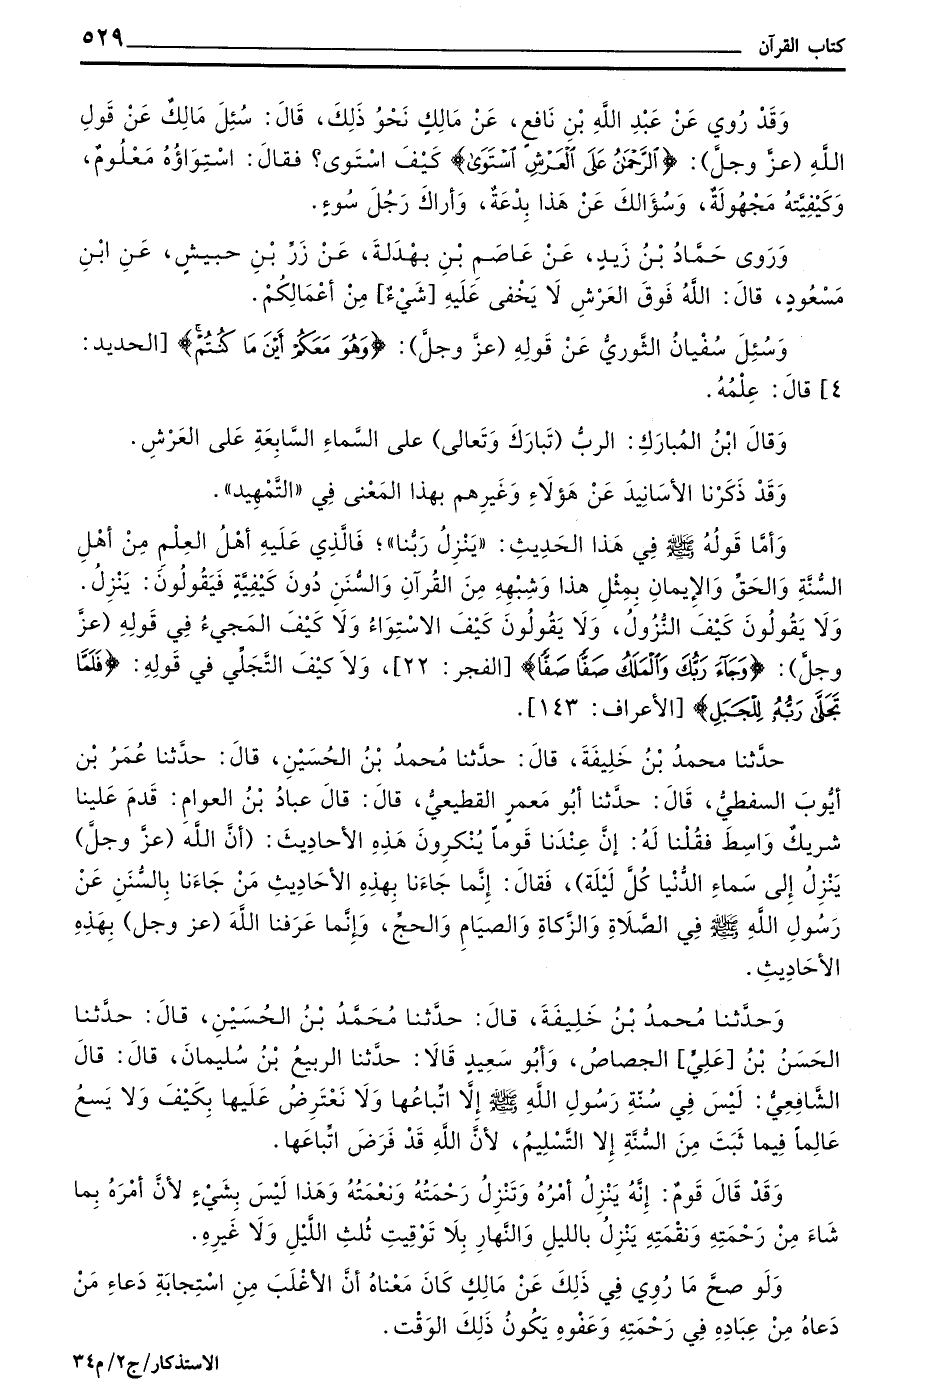 كتاب القرآن ٥٢٩
وَقَدْ رُوي عَنْ عَبْدِ اللَّهِ بْنِ نَافعٍ، عَنْ مَالِكٍ نَحْوُ ذَلِكَ، قَالَ: سُئِلَ مَالِكٌ عَنْ قَولِ
اللَّهِ (عزَّ وجلَّ): ﴿الرَّحْمَنُ عَلَى الْعَرْشِ اسْتَوَى﴾ كَيْفَ اسْتَوى؟ فقالَ: اسْتِوَاؤُهُ مَعْلُومٌ،
وَكَيْفِيَّتهُ مَجْهُولَةٌ، وَسُؤَالكَ عَنْ هَذا بِدْعَةٌ، وَأَراكَ رَجُلَ سُوءٍ.
وَرَوى حَمَّادُ بْنُ زَيدٍ، عَنْ عَاصَمِ بْنِ بهْدَلةَ، عَنْ زَرِّ بْنِ حبيشٍ، عَنِ ابْنِ
مَسْعُودٍ، قالَ: اللَّهُ فَوقَ العَرْشِ لَا يَخْفى عَلَيهِ [شَيْءٌ] مِنْ أعْمَالِكُمْ.
وَسُئِلَ سُفْيانُ الثَّوريُّ عَنْ قَولِهِ (عزَّ وجلَّ): ﴿وَهُوَ مَعَكُمْ أَيْنَ مَا كُنْتُمْ﴾ [الحديد:
٤] قالَ: عِلْمُهُ.
وَقالَ ابْنُ المُبارَكِ: الربُّ (تَبارَكَ وَتَعالى) على السَّماءِ السَّابِعَةِ عَلى العَرْشِ.
وَقَدْ ذَكَرْنا الأسَانِيدَ عَنْ هَؤلَاءِ وَغَيرِهم بهذا المَعْنى فِي «التَّمْهِيد».
وَأمَّا قَولُهُ ﷺ فِي هَذا الحَدِيثِ: «يَنْزِلُ رَبُّنا»؛ فَالَّذِي عَلَيهِ أهْلُ العِلْمِ مِنْ أهْلِ
السُّنَّةِ وَالحَقِّ وَالإيمانِ بِمِثْلِ هذا وَشِبْهِهِ مِنَ القُرآنِ وَالسُّنَنِ دُونَ كَيْفِيَّةٍ فَيَقُولُونَ: يَنْزِلُ.
وَلَا يَقُولُونَ كَيْفَ النُّزُولُ، وَلَا يَقُولُونَ كَيْفَ الاسْتِوَاءُ وَلَا كَيْفَ المَجيءُ فِي قَولِهِ (عزَّ
وجلَّ): ﴿وَجَاءَ رَبُّكَ وَالْمَلَكُ صَفًّا صَفًّا﴾ [الفجر: ٢٢]، وَلاَ كيْفَ التَّجَلِّي في قَولِهِ: ﴿فَلَمَّا
تَجَلَّى رَبُّهُ لِلْجَبَلِ﴾ [الأعراف: ١٤٣].
حدَّثنا محمدُ بْنُ خَلِيفَةَ، قالَ: حدَّثنا مُحمدُ بْنُ الحُسَيْنِ، قالَ: حدَّثنا عُمَرُ بْن
أيُّوبَ السفطيُّ، قَالَ: حدَّثنا أبُو مَعمرٍ القطيعيُّ، قالَ: قالَ عبادُ بْنُ العوامِ: قَدمَ عَلينا
شريكٌ وَاسِطَ فقُلْنا لَهُ: إنَّ عِنْدَنا قَوماً يُنْكِرونَ هَذِهِ الأحاديثَ: (أنَّ اللَّهَ (عزَّ وجلَّ)
يَنْزِلُ إلى سَماءِ الدُّنْيا كُلَّ لَيْلَة)، فَقالَ: إنَّما جَاءَنا بِهذِهِ الأحَادِيثِ مَنْ جَاءَنا بِالسُّنَنِ عَنْ
رَسُولِ اللَّهِ ﷺ فِي الصَّلَاةِ وَالزَّكاةِ وَالصيَامِ وَالحجِّ، وَإنَّما عَرَفنا اللَّهَ (عز وجل) بِهَذِهِ
الأحَادِيثِ.
وَحدَّثنا مُحمدُ بْنُ خَلِيفَةَ، قالَ: حدَّثنا مُحَمَّدُ بْنُ الحُسَيْنِ، قالَ: حدَّثنا
الحَسَنُ بْنُ [عَلِيٍّ] الجصاصُ، وَأبُو سَعِيدٍ قَالَا: حدَّثنا الربيعُ بْنُ سُليمانَ، قالَ: قالَ
الشَّافِعِيُّ: لَيْسَ فِي سُنّةِ رَسُولِ اللَّهِ ﷺ إلَّا اتِّباعُها وَلَا نَعْتَرِضُ عَلَيها بِكَيْفَ وَلَا يَسعُ
عَالِماً فِيما ثَبَتَ مِنَ السُّنَّةِ إلا التَّسْلِيمُ، لأنَّ اللَّهَ قَدْ فَرَضَ اتِّباعَها.
وَقَدْ قَالَ قَومٌ: إنَّهُ يَنْزِلُ أمْرُهُ وَتَنْزِلُ رَحْمَتُهُ وَنعْمَتُهُ وَهَذا لَيْسَ بِشَيْءٍ لأنَّ أمْرَهُ بِما
شَاءَ مِنْ رَحْمَتِهِ وَنقْمَتِهِ يَنْزِلُ بالليلِ وَالنَّهارِ بِلَا تَوْقِيتِ ثُلثِ اللَّيْلِ وَلَا غَيرِهِ.
وَلَو صحَّ مَا رُوِي فِي ذَلِكَ عَنْ مَالِكٍ كَانَ مَعْناهُ أنَّ الأغْلَبَ مِنِ اسْتِجابَةِ دَعاءِ مَنْ
دَعاهُ مِنْ عِبادِهِ فِي رَحْمَتِهِ وَعَفْوهِ يَكُونُ ذَلِكَ الوَقْت.
الاستذكار/ج٢/م٣٤